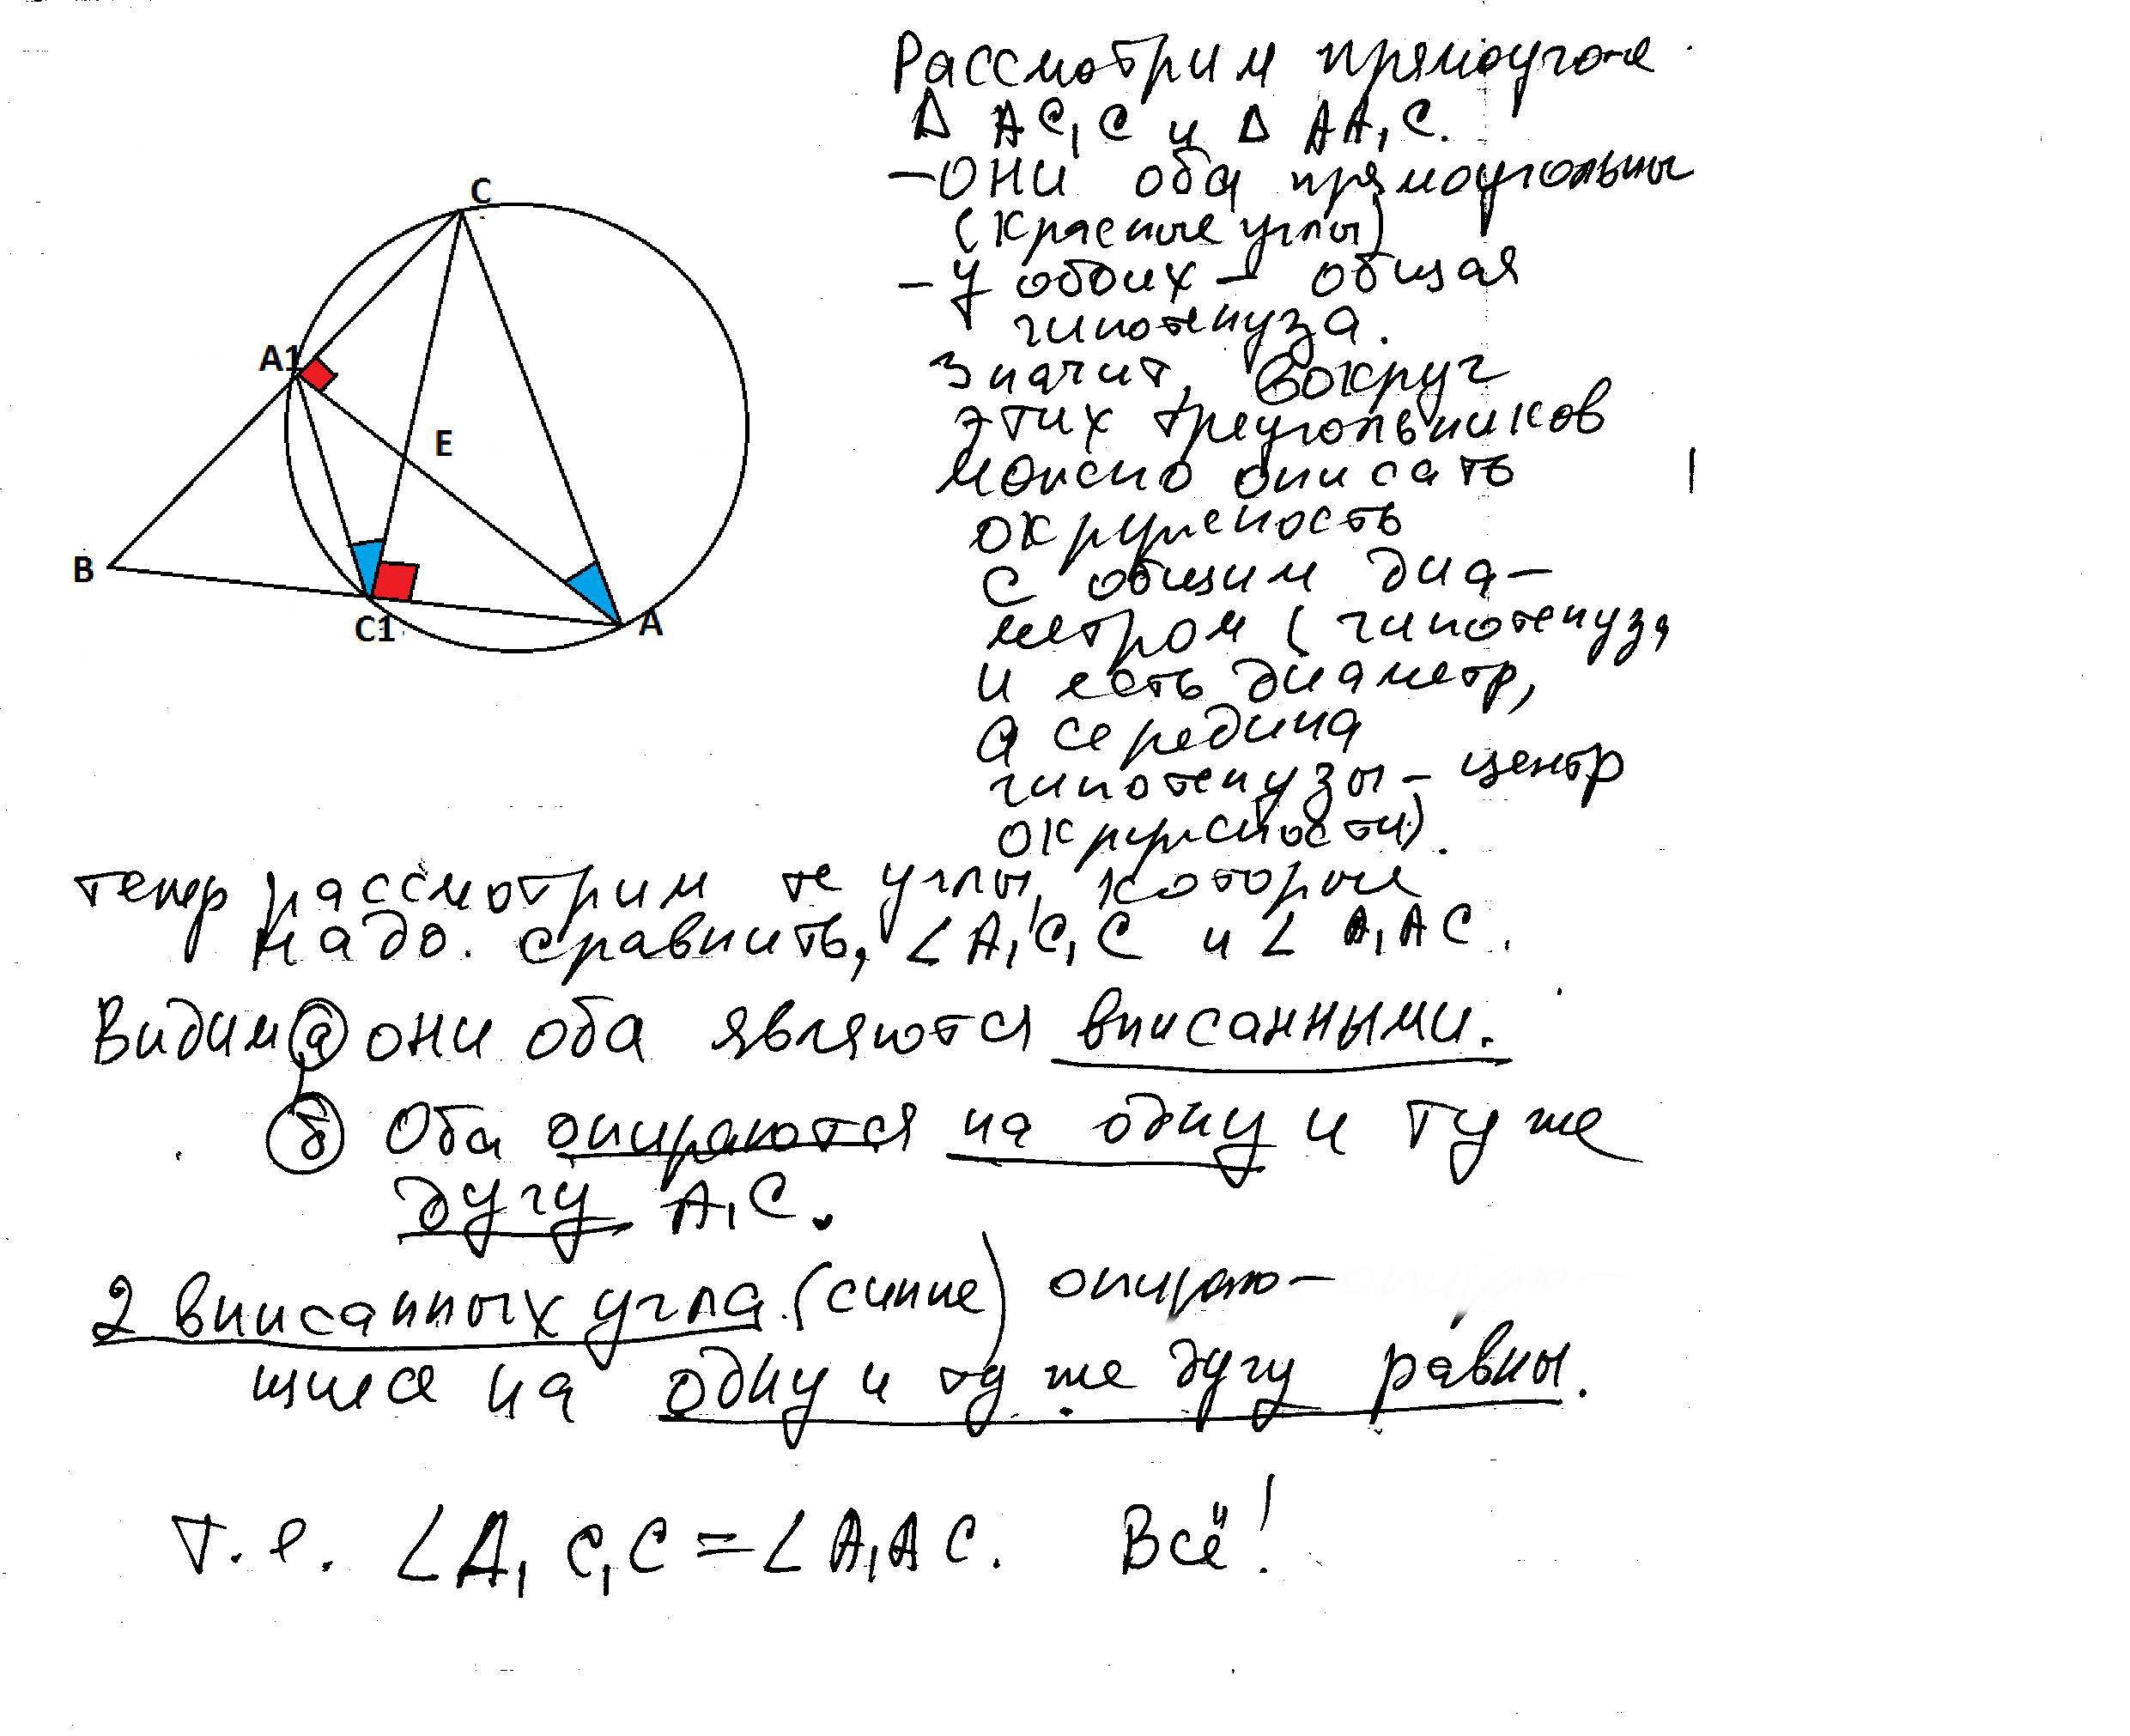 C
A1
E
B
C1
A
Рассмотрим прямоуг-ые
Δ AC₁C и Δ AA₁C.
– они оба прямоугольны
(красные углы)
– у обоих – общая
гипотенуза.
Значит, вокруг
этих треугольников
можно описать
окружность
с общим диа–
метром (гипотенуза
и есть диаметр,
а середина
гипотенузы – центр
окружности).
тепер рассмотрим те углы, которые
надо. сравнить, ∠A₁C₁C и ∠A₁AC.
Видим а они оба являются вписанными.
б Оба опираются на одну и ту же
дугу A₁C.
2 вписанных угла (синие) опираю–
щиеся на одну и ту же дугу равны.
т.е. ∠A₁C₁C = ∠A₁AC. Всё!